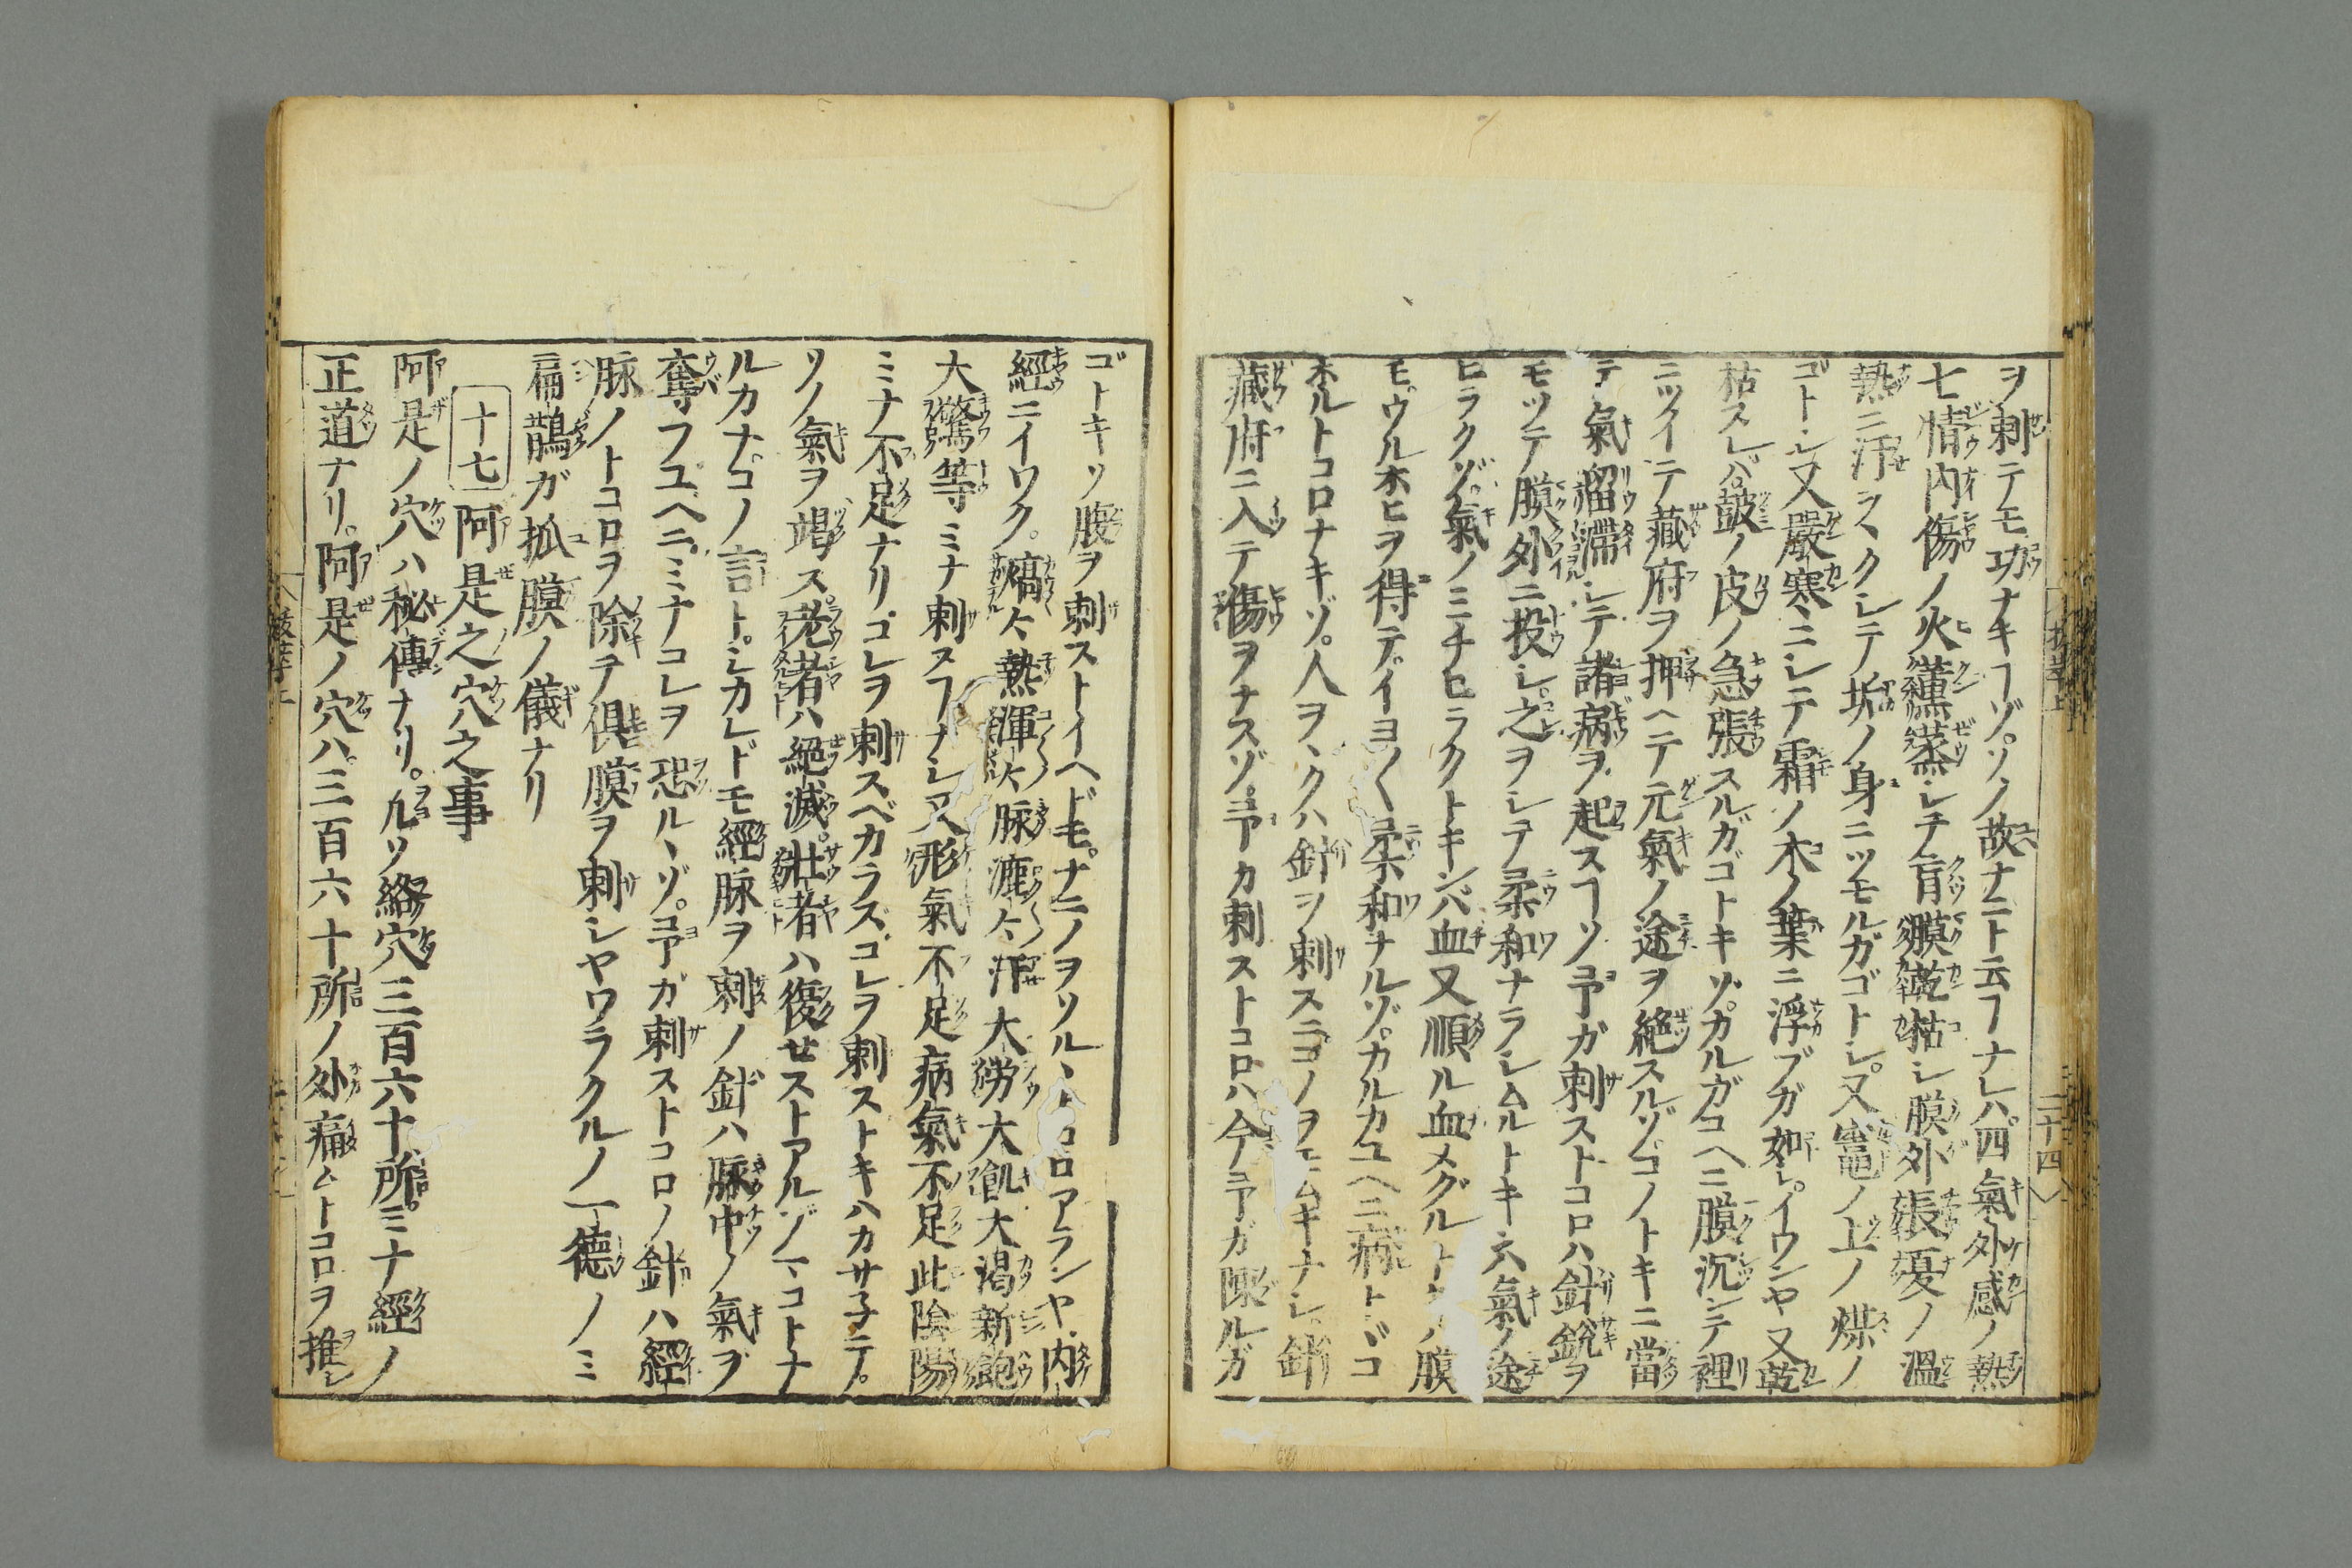 ヲ刺テモ功ナキヿゾ。ソノ故ナニト云ヿナレハ。四氣外感ノ熱
七情内傷ノ火薫蒸シテ肓膜乾枯シ膜外張憂ノ溫
熱ニ汗ヲヽクシテ垢ノ身ニツモルガゴトシ。又竈ノ上ノ煤ノ
ゴトシ又嚴寒ニシテ霜ノ木ノ葉ニ浮ブガ如シ。イワンヤ又乾
枯スレバ。皷ノ皮ノ急張スルガゴトキゾ。カルガユヘニ膜沉シテ裡
ニツイテ藏府ヲ押ヘテ元氣ノ途ヲ絶スルゾ。コノトキニ當
テ氣瘤滯シテ諸病ヲ起スヿソ予ガ刺ストコロハ針鋭ヲ
モツテ膜外ニ投シ之ヲシテ柔和ナラシムルトキ六氣ノ途
ヒラクゾ。氣ノミチヒラクトキンバ血又順ル血メグルト膜
モ。ウルホヒヲ得テ。イヨ〱柔和ナルゾ。カルカユヘニ病トヾコ
ホルトコロナキゾ。人ヲヽクハ針ヲ刺スニコノヲモムキナシ。針
藏府ニ入テ傷ヲナスゾ。予カ刺ストコロハ今予ガ陳ルガ
ゴトキソ腹ヲ刺ストイヘドモ。ナニノヲソルヽトコロアランヤ。内
經ニイワク。熇々熱渾々脉漉々汗大勞大飢大渴新飽
大驚等ミナ刺スヿナシ又形氣不足病氣不足此陰陽
ミナ不足ナリ。コレヲ刺スベカラス。コレヲ刺ストキハカサ子テ。
ソノ氣ヲ竭ス。老者ハ絶滅。壯者ハ復セストアルゾ。マコトナ
ルカナ。コノ言ト。シカレドモ經脉ヲ刺ノ針ハ脉中ノ氣ヲ
奪フユヘニ。ミナコレヲ恐ルヽゾ。予ガ刺ストコロノ針ハ經
脉ノトコロヲ除テ倶膜ヲ刺シヤワラクルノ一德ノミ
扁鵲ガ抓膜ノ儀ナリ
十七 阿是之穴之事
阿是ノ穴ハ秘傳ナリ。凡ソ絡穴三百六十所。ミナ經ノ
正道ナリ。阿是ノ穴ハ。三百六十所ノ外痛ムトコロヲ推シ
二十四